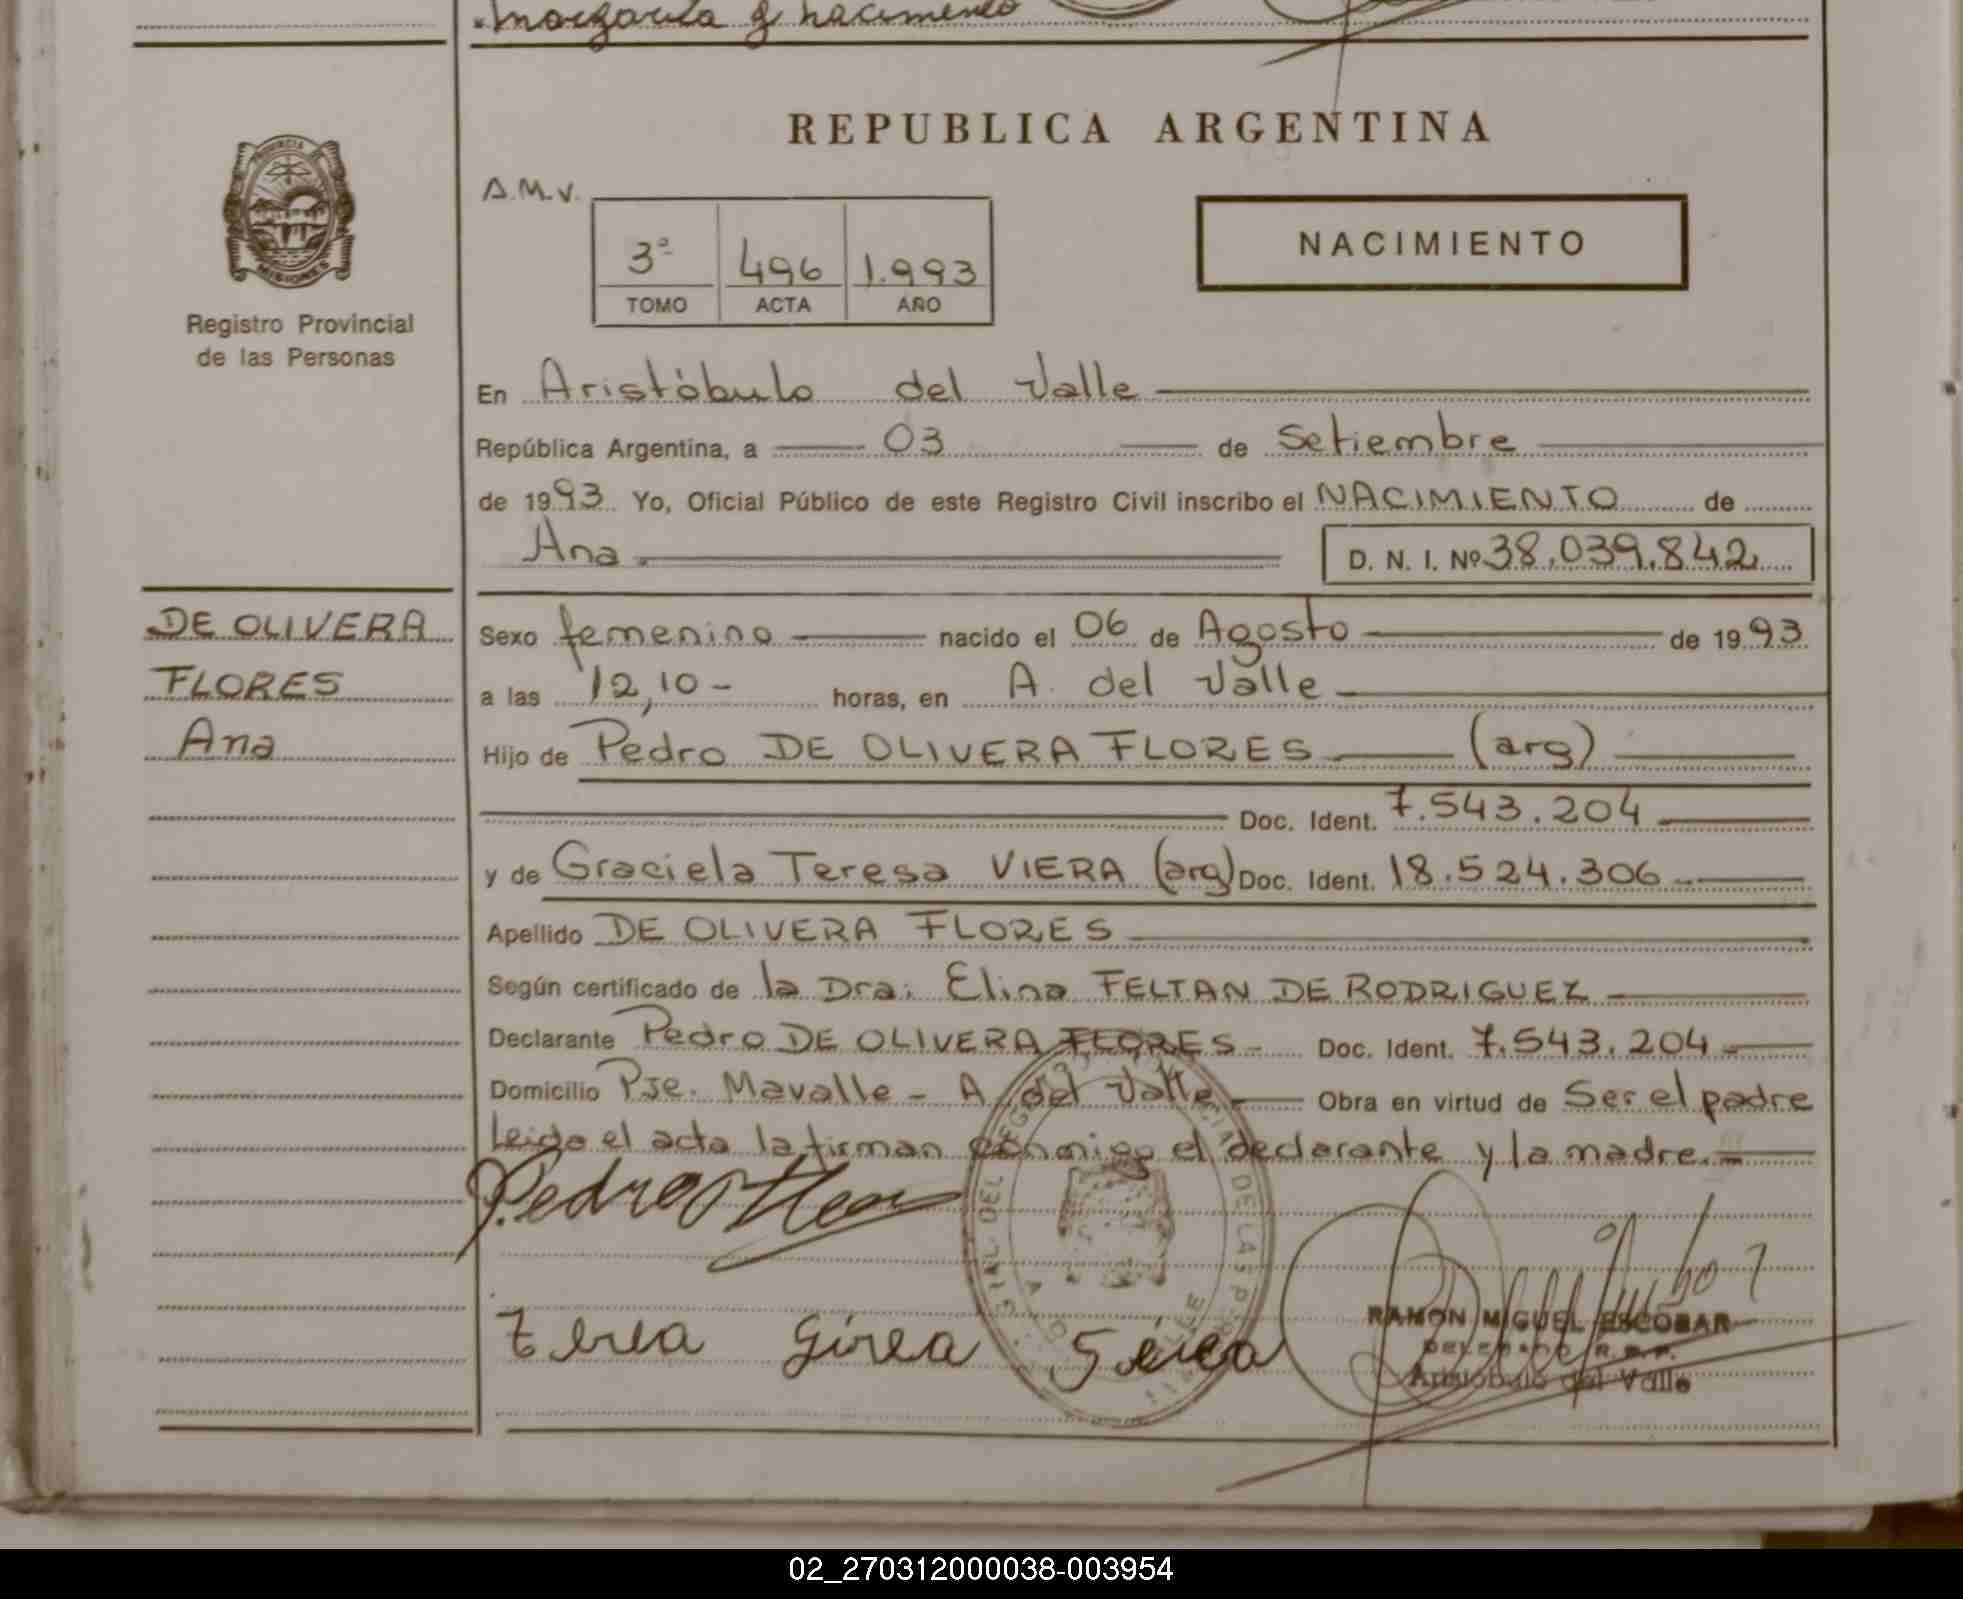 Margarita g nacimiento
REPUBLICA ARGENTINA
PROVINCIA DE
MISIONES
Registro Provincial
de las Personas
A.M.V.
3ª 496 1.993
TOMO ACTA AÑO
NACIMIENTO
En Aristóbulo del Valle
República Argentina, a 03 de Setiembre
de 1993. Yo, Oficial Público de este Registro Civil inscribo el NACIMIENTO de
Ana D. N. I. Nº 38.039.842
DE OLIVERA
FLORES
Ana
Sexo femenino nacido el 06 de Agosto de 1993
a las 12,10 - horas, en A. del Valle
Hijo de Pedro DE OLIVERA FLORES (arg)
Doc. Ident. 7.543.204
y de Graciela Teresa VIERA (arg) Doc. Ident. 18.524.306
Apellido DE OLIVERA FLORES
Según certificado de la Dra: Elina FELTAN DE RODRIGUEZ
Declarante Pedro DE OLIVERA FLORES - Doc. Ident. 7.543.204
Domicilio Pje. Mavalle - A. del Valle Obra en virtud de Ser el padre
Leida el acta la firman conmigo el declarante y la madre.-
RAMON MIGUEL ESCOBAR
DELEGADO R.P.P.
Aristóbulo del Valle
02_270312000038-003954